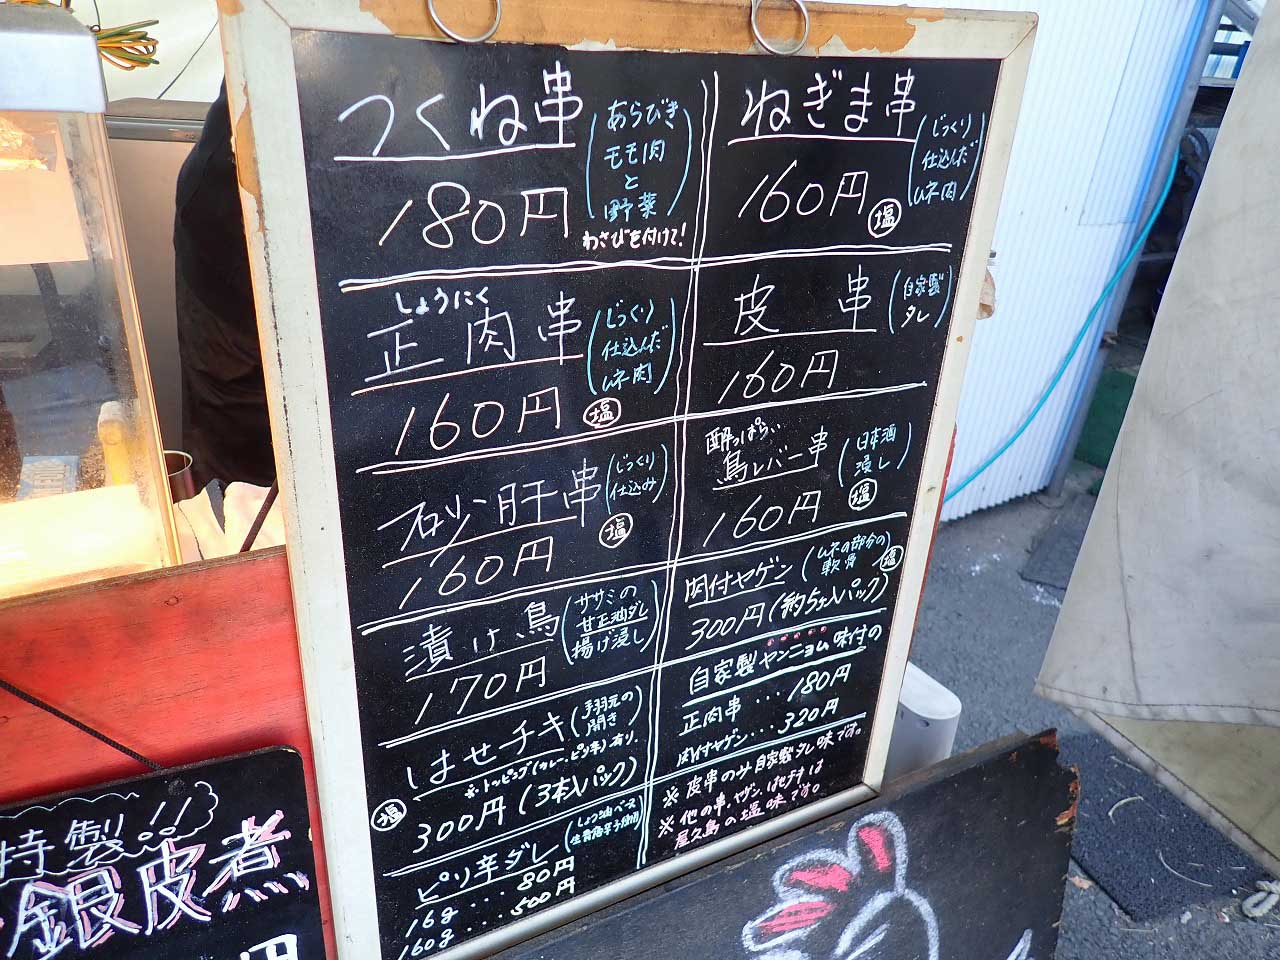 つくね串
あらびき
モモ肉
と
野菜
180円
わさびを付けて!
ねぎま串
じっくり
仕込んだ
ムネ肉
160円
塩
しょうにく
正肉串
じっくり
仕込んだ
ムネ肉
160円
塩
皮串
自家製
タレ
160円
砂肝串
じっくり
仕込み
160円
塩
酔っぱらい
鳥レバー串
日本酒
浸し
160円
塩
漬け鳥
ササミの
甘正油ダレ
揚げ浸し
170円
肉付ヤゲン
ムネの部分の
軟骨
塩
300円(約5ヶ入パック)
はせチキ
手羽元の
開き
※トッピング(カレー、ピリ辛)有り、
塩
300円(3本入パック)
自家製ヤンニョム味付の
正肉串・・・180円
肉付ヤゲン・・・320円
ピリ辛ダレ
しょう油ベース
16g・・・80円
160g・・・500円
※皮串のみ自家製タレ味です。
※他の串、ヤゲン、はせチキは
屋久島の塩味です。
特製!!
銀皮煮
円